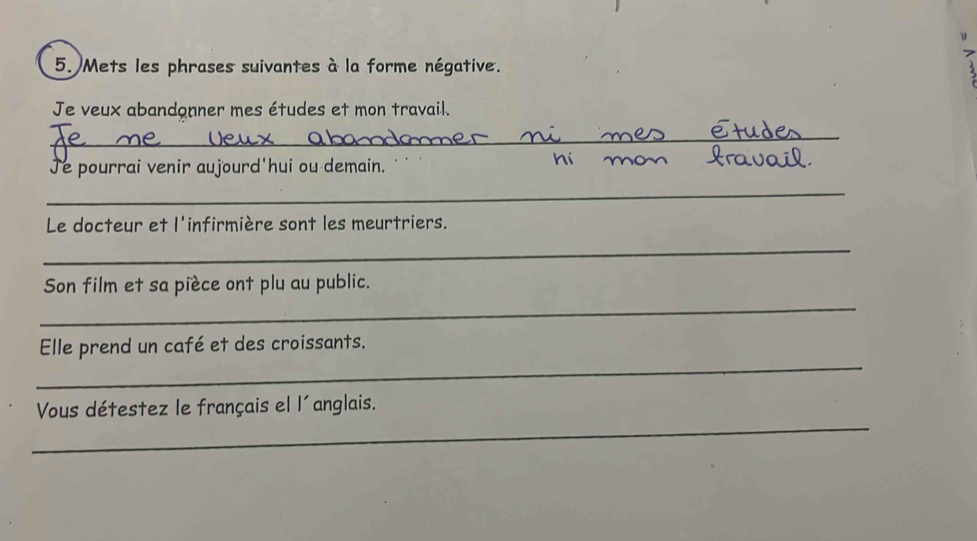 5. Mets les phrases suivantes à la forme négative.
Je veux abandonner mes études et mon travail.
Je ne veux abandonner ni mes études
ni mon travail.
Je pourrai venir aujourd'hui ou demain.
Le docteur et l'infirmière sont les meurtriers.
Son film et sa pièce ont plu au public.
Elle prend un café et des croissants.
Vous détestez le français el l´anglais.